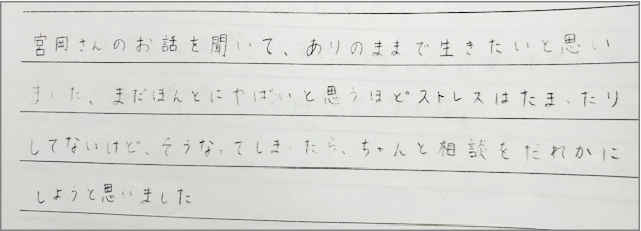 宮岡さんのお話を聞いて、ありのままで生きたいと思い
ました。まだほんとにやばいと思うほどストレスはたまったり
してないけど、そうなってしまったら、ちゃんと相談をだれかに
しようと思いました